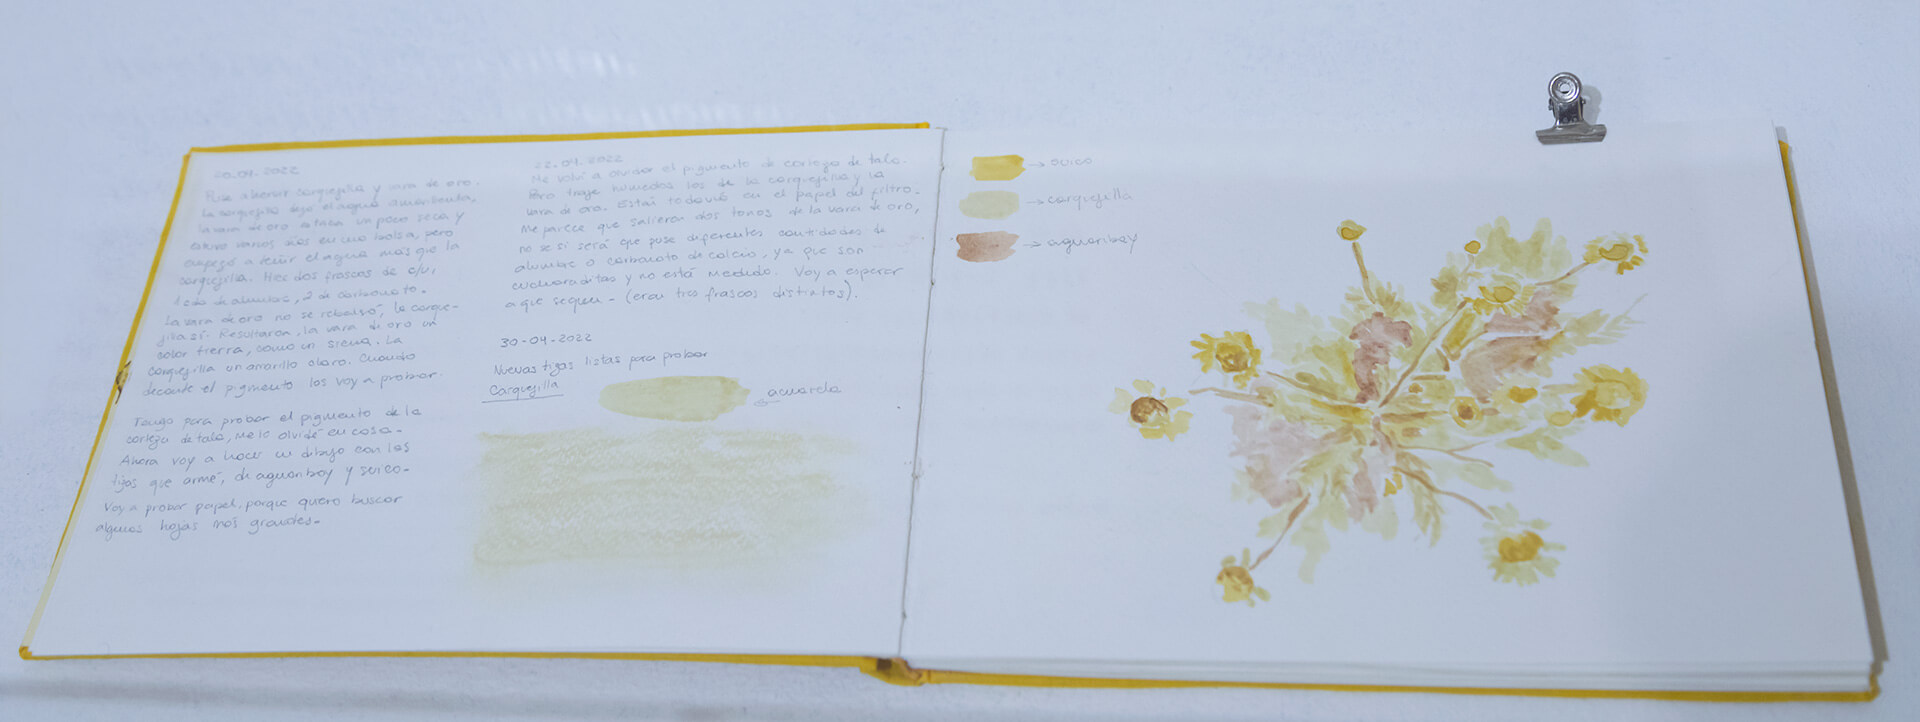 20.04.2022
Puse a hervir carquejilla y vara de oro.
La carquejilla dejó el agua amarillenta,
la vara de oro estaba un poco seca y
estuvo varios días en una bolsa, pero
empezó a teñir el agua más que la
carquejilla. Hice dos frascos de c/u,
1 cda de alumbre, 2 de carbonato.
La vara de oro no se rebalsó, la carque-
jilla sí. Resultaron, la vara de oro un
color tierra, como un siena. La
carquejilla un amarillo claro. Cuando
decante el pigmento los voy a probar.
Tengo para probar el pigmento de la
corteza de tala, me lo olvidé en casa.
Ahora voy a hacer un dibujo con las
tizas que armé, de aguaribay y suico.
Voy a probar papel, porque quero buscar
algunas hojas más grandes.
22.04.2022
Me volví a olvidar el pigmento de corteza de tala.
Pero traje húmedos los de la carquejilla y la
vara de oro. Están todavía en el papel del filtro.
Me parece que salieron dos tonos de la vara de oro,
no se si será que puse diferentes cantidades de
alumbre o carbonato de calcio, ya que son
cucharaditas y no está medido. Voy a esperar
a que sequen - (eran tres frascos distintos).
30-04-2022
Nuevas tizas listas para probar
Carquejilla
acuarela
→ suico
→ carquejilla
→ aguaribay